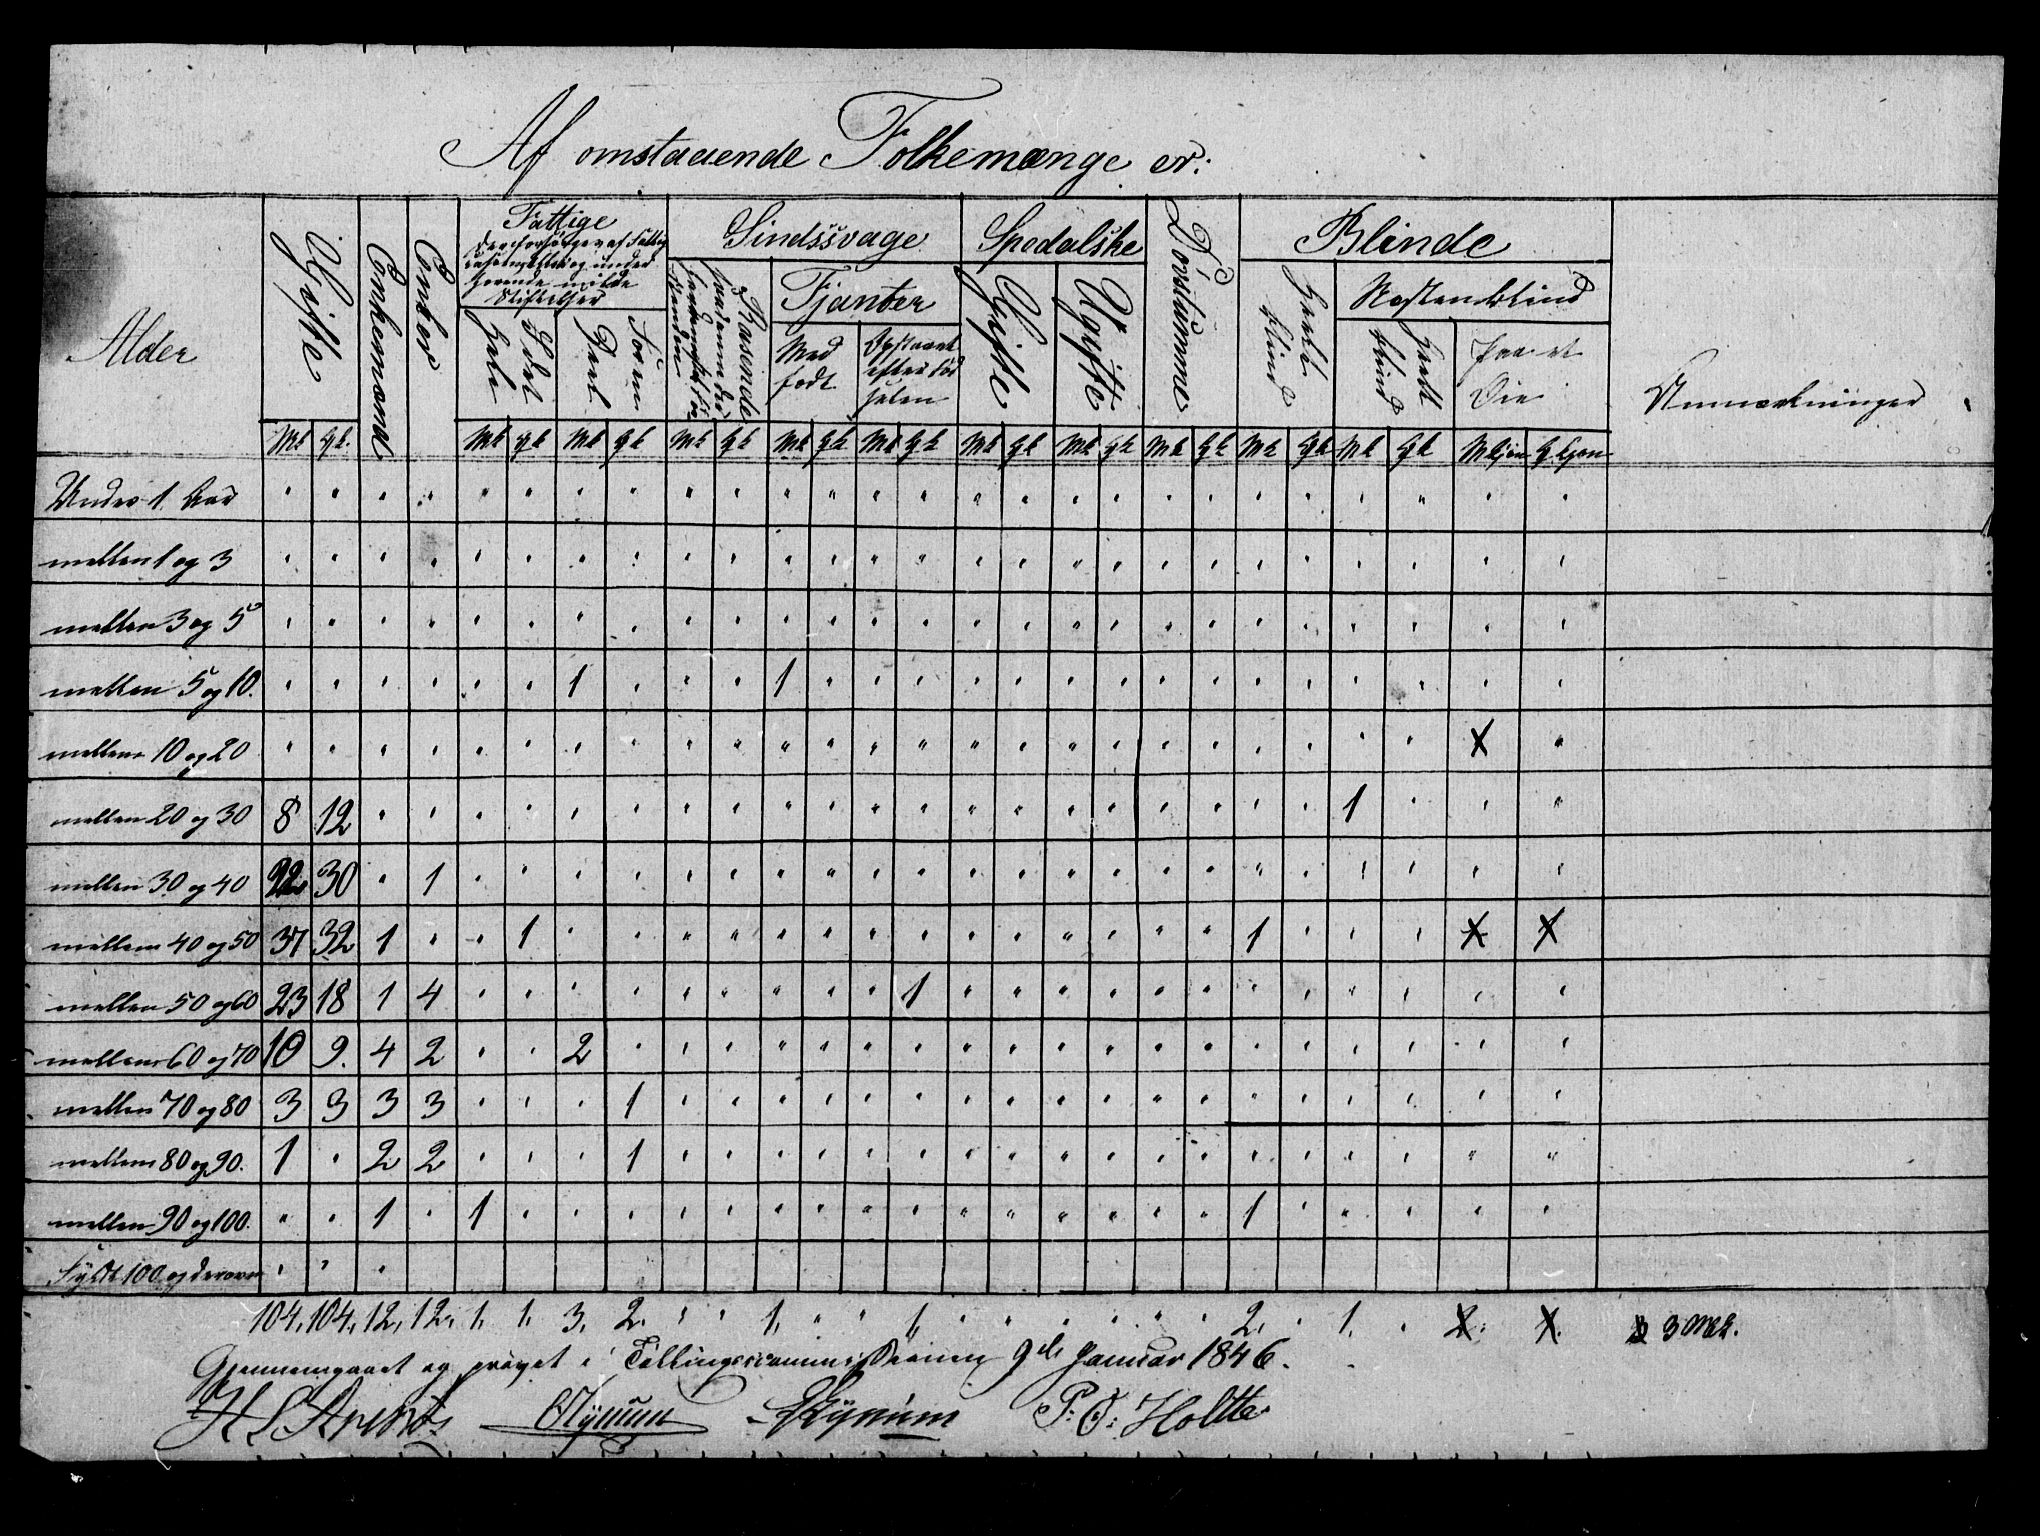 Af omstaaende Folkemængde er:
Alder
Gifte
Enkemænd
Enker
Fattige
Stiftelser
Hele
Deel
For en Deel
Sindssvage
Rasende
Fjanter
Med født
Opstaaet efter Fødselen
Spedalske
Gifte
Ugifte
Døvstumme
Blinde
Heelt blind
Næsten blind
Heelt blind
Paa et Øie
Anmærkninger
Mk Qk. Mk Qk Mk Qk Mk Qk Mk Qk Mk Qk Mk Qk Mk Qk Mk Qk Mk Qk Mk Qk Mkjøn Qkjøn
Under 1 Aar
mellem 1 og 3
mellem 3 og 5
mellem 5 og 10. 1 1
mellem 10 og 20 X
mellem 20 og 30 8 12 1
mellem 30 og 40 22 30 1
mellem 40 og 50 37 32 1 1 1 X X
mellem 50 og 60 23 18 1 4 1
mellem 60 og 70 10 9. 4 2 2
mellem 70 og 80 3 3 3 3 1
mellem 80 og 90. 1 2 2 1
mellem 90 og 100. 1 1 1
Fyldt 100 og derover
104, 104, 12, 12, 1, 1, 3, 2. 1, 1, 2, 1, 3 Mk.
Gjennemgaaet og prøvet i Tællingscommissionen 9de Januar 1846.
P: O: Holtte